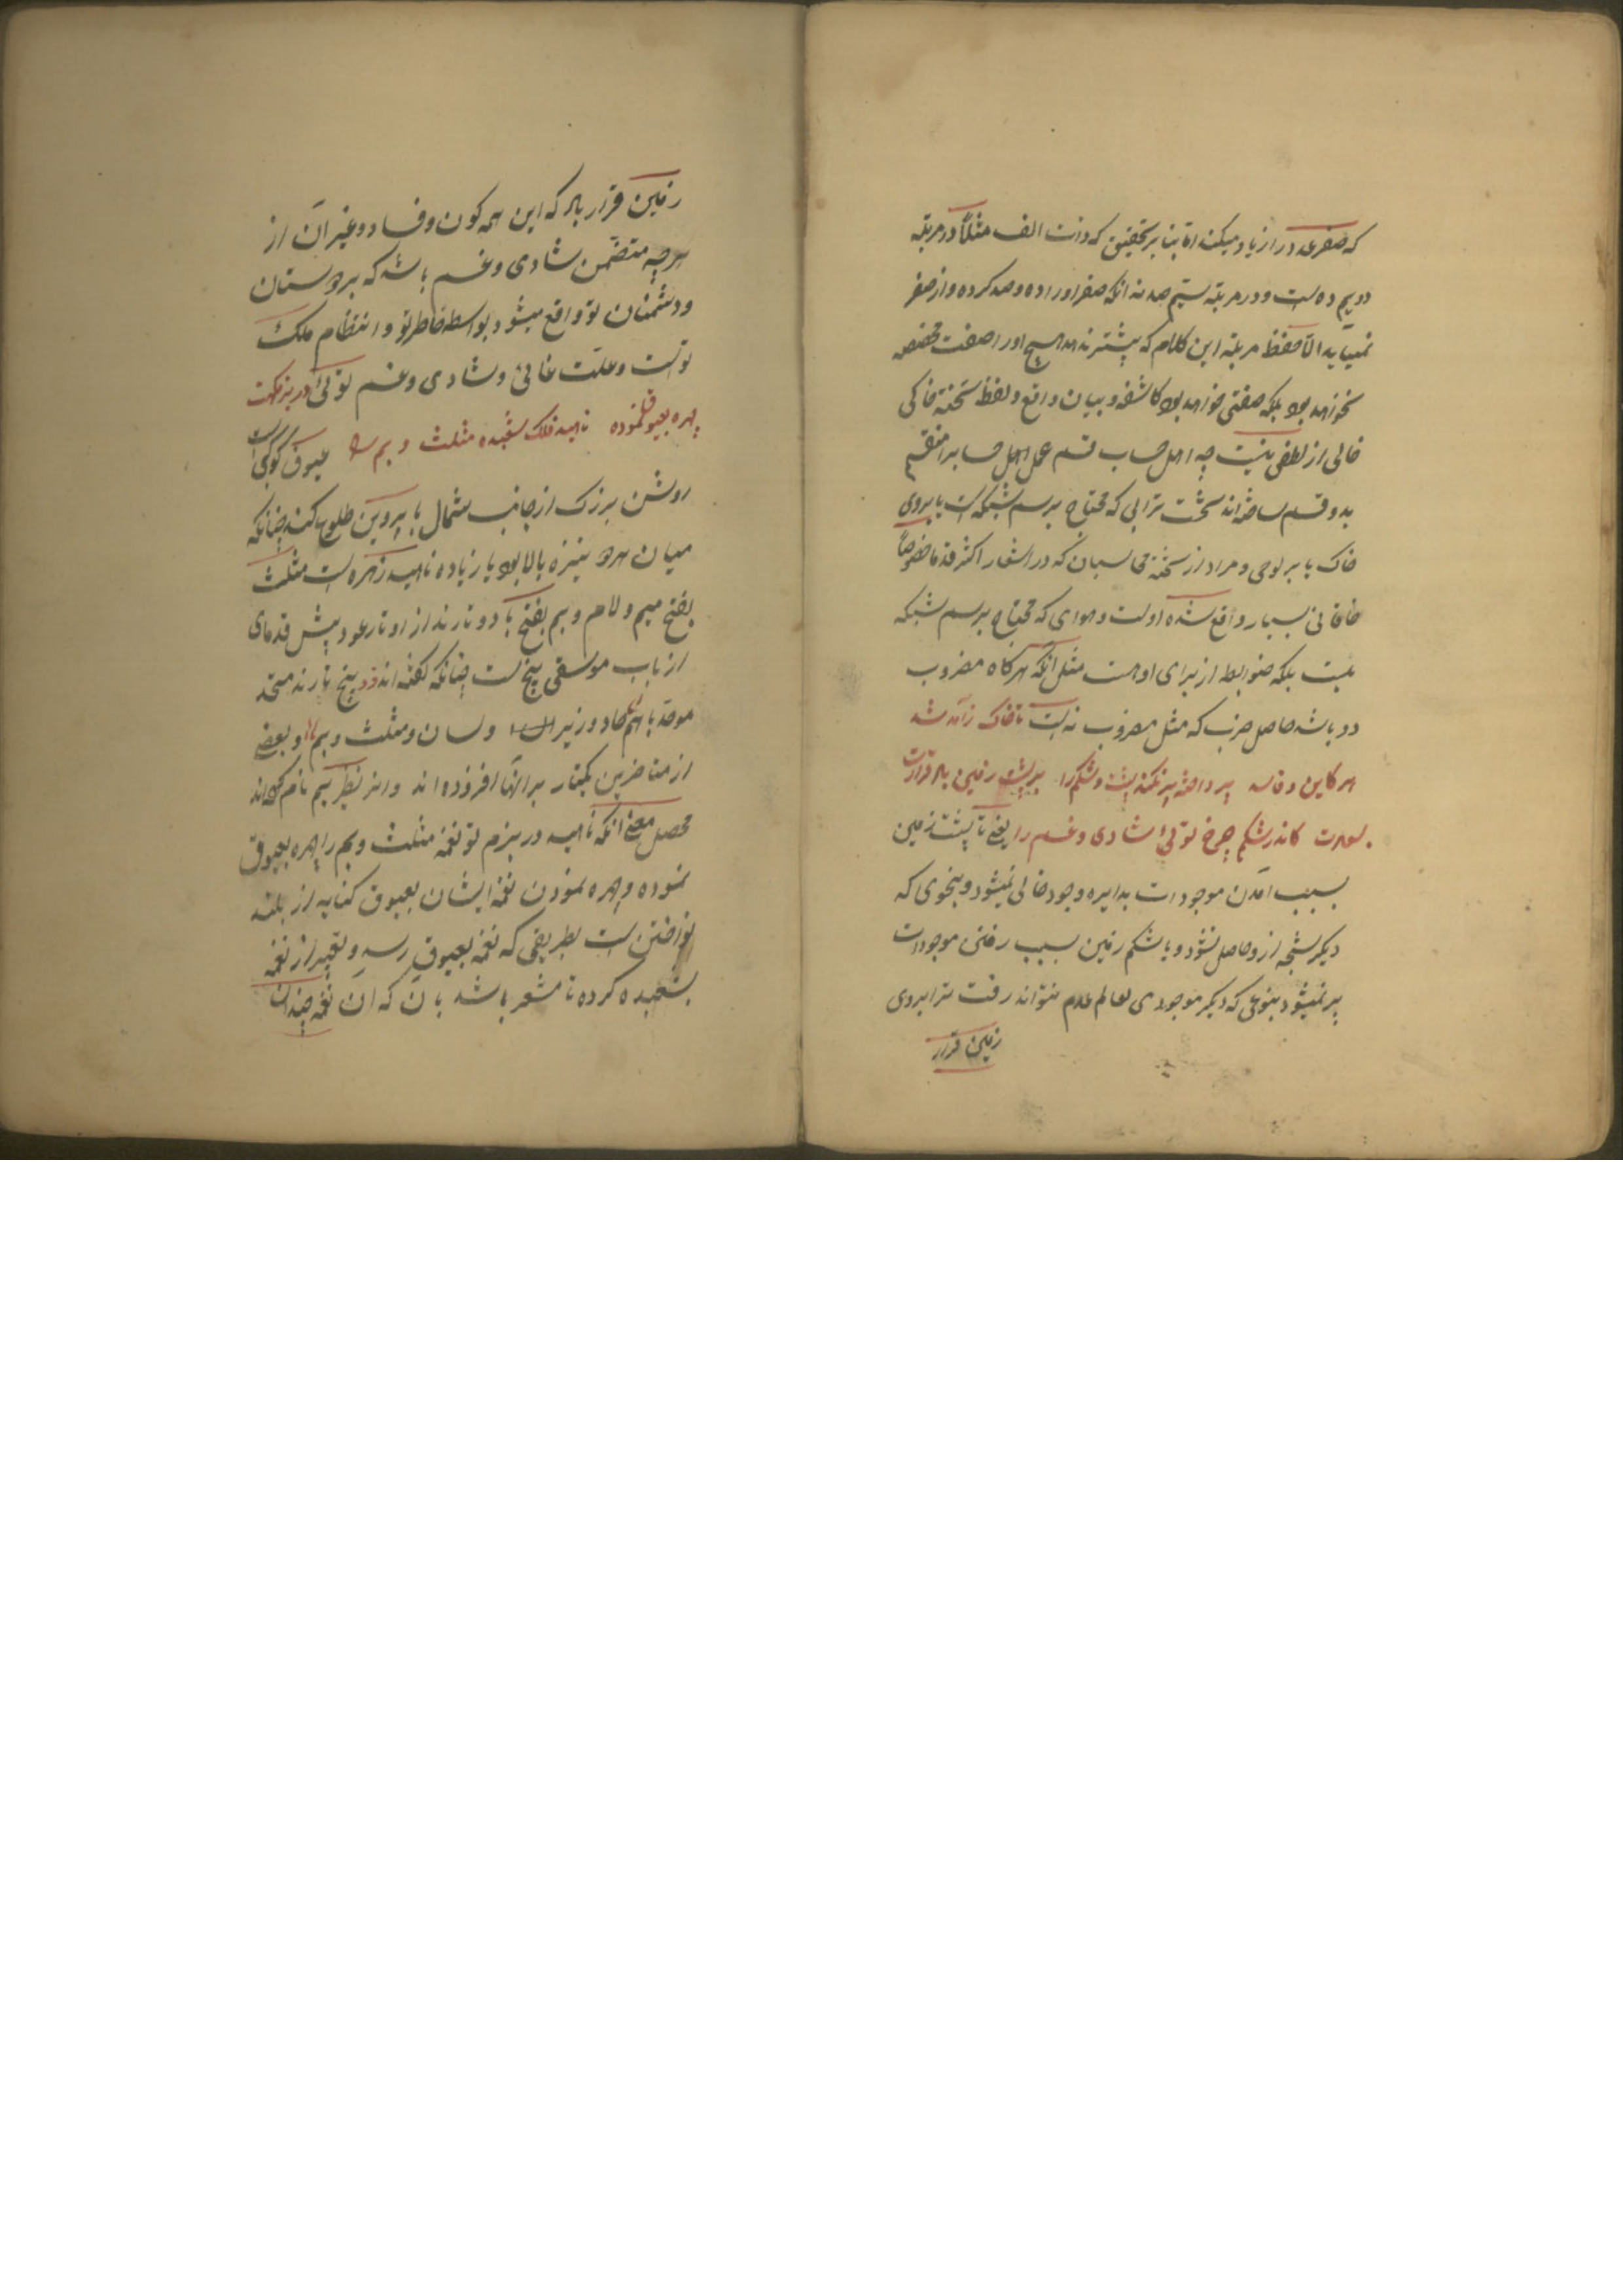 که صفر عدد را زیاد میکند اما بنا بر تحقیق که ذات الف مثلاً در مرتبه
دویم ده است و در مرتبه سیم صد نه آنکه صفر او را ده و صد کرده و از صفر
نمیآید الا حفظ مرتبه این کلام که بیشتر ندهد هیچ او را صفت مخصص
نخواهد بود بلکه صفتی خواهد بود کاشفه و بیان واقع و لفظ تخته خاکی
خالی از لطفی نیست چه اهل حساب قسم عمل اهل حساب را منقسم
بدو قسم ساخته اند تخت ترابی که محتاج برسم شبکه است یا بروی
خاک یا بر لوحی و مراد از تخته محاسبان که در اشعار اکثر قدما خصوصاً
خاقانی بسیار واقع شده اولست و هوای که محتاج برسم شبکه
نیست بلکه ضوابط از برای او هست مثل آنکه هرگاه مضروب
دو باشد حاصل ضرب که مثل مضروب فیه است تا خاک ز آمد شد
هر کاین و فاسد پر دافته پر نکند پشت و شکم را بر پشت زمین باد قرارت
بسعادت کاندر شکم چرخ توئی شادی و غم را یعنی تا پشت زمین
بسبب آمدن موجودات بدایره وجود خالی نمیشود و بنحوی که
دیگر نتیجه ازو حاصل نشود و یا شکم زمین بسبب رفتن موجودات
پر نمیشود بنوعی که دیگر موجودی بعالم عدم نتواند رفت ترا بروی
زمین قرار
زمین قرار باد که این همه کون و فساد و غیر آن از
هرچه متضمن شادی و غم باشد که بر دوستان
و دشمنان تو واقع میشود بواسطه خاطر تو و انتظام ملک
تو است و علت غائی و شادی و غم توئی در بزمگهت
چهره بعیوق نموده ناهید فلک شعبده مثلث و بم را عیوق کوکبی است
روشن بزرک از جانب شمال با پروین طلوع کند چنانکه
میان هر دو نیزه بالا بود یا زیاده ناهید زهره است مثلث
بفتح میم و لام و بم بفتح با دو تارند از اوتار عود پیش قدمای
ارباب موسیقی پنج است چنانکه گفته اند پنج تارند متحد
موحد باهم حاد و زیر است و سان و مثلث و بم و بعضی
از متاخرین یکتار بر آنها افزوده اند و انرا نظر بم نام کرده اند
محصل معنی آنکه ناهید در بزم تو نغمه مثلث و بم را چهره بعیوق
نموده و چهره نمودن نغمه ایشان بعیوق کنایه از بلند
نواختن است بطریقی که نغمه بعیوق رسد و تعبیر از نغمه
بشعبده کرده تا مشعر باشد بان که آن نغمه چندان